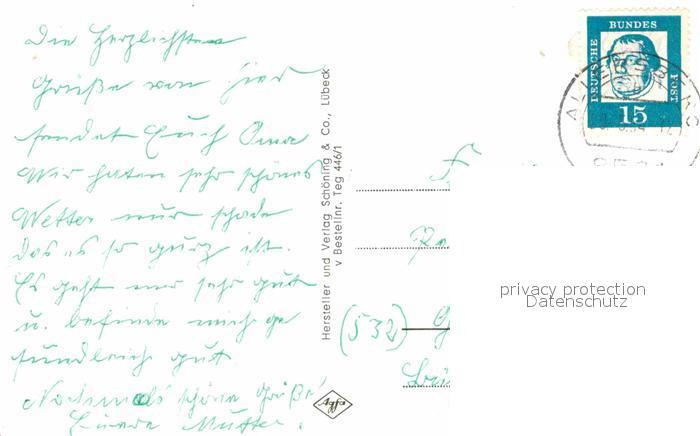 Die Herzlichsten
Grüße von hier
sendet Euch Oma
Wir haten sehr schönes
Wetter nur schade
das es so gurz ist.
Es geht mir sehr gut
u. befinde mich ge
sundleich gut
Nochmals schöne Grüße!
Euere Mutter.
Hersteller und Verlag Schöning & Co., Lübeck
v Bestellnr. Teg 446/1
Agfa
DEUTSCHE
BUNDES
POST
15
(532)
privacy protection
Datenschutz